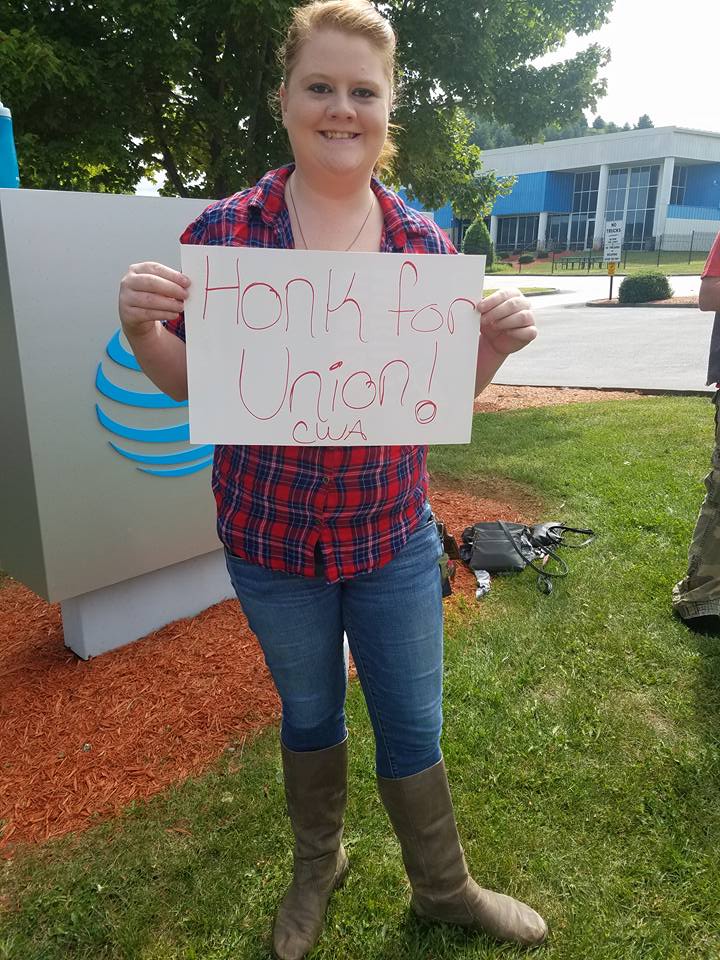 Honk for
Union!
CWA
NO
TRUCKS